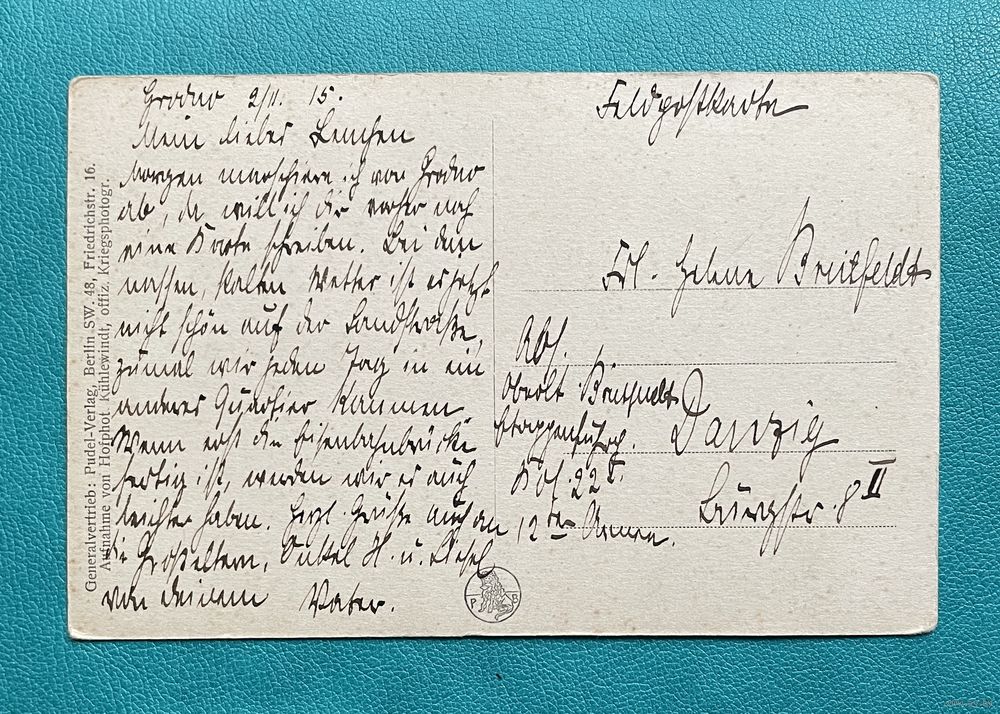 Grodno 2/11. 15.
Mein liebes Lenchen
Morgen marschiere ich von Grodno
ab, da will ich dir vorher noch
eine Karte schreiben. Bei dem
nassen, kalten Wetter ist es jetzt
nicht schön auf der Landstraße,
zumal wir jeden Tag in ein
anderes Quartier kommen.
Wenn erst die Eisenbahnbrücke
fertig ist, werden wir es auch
leichter haben. Herzl. Grüße auch an
die Großeltern, Onkel H. u. Liesel
von deinem Vater.
Feldpostkarte
Frl. Helene Breitfeldt
Danzig
Burgstr. 8 II
Abs.
Oberlt Breitfeldt
Kol. 22
12ter Armee.
Generalvertrieb: Pudel-Verlag, Berlin SW. 48, Friedrichstr. 16.
Aufnahme von Hofphot. Kühlewindt, offiz. Kriegsphotogr.
P B